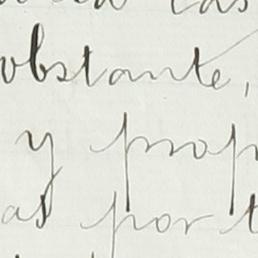 obstante,
y prop
as por t